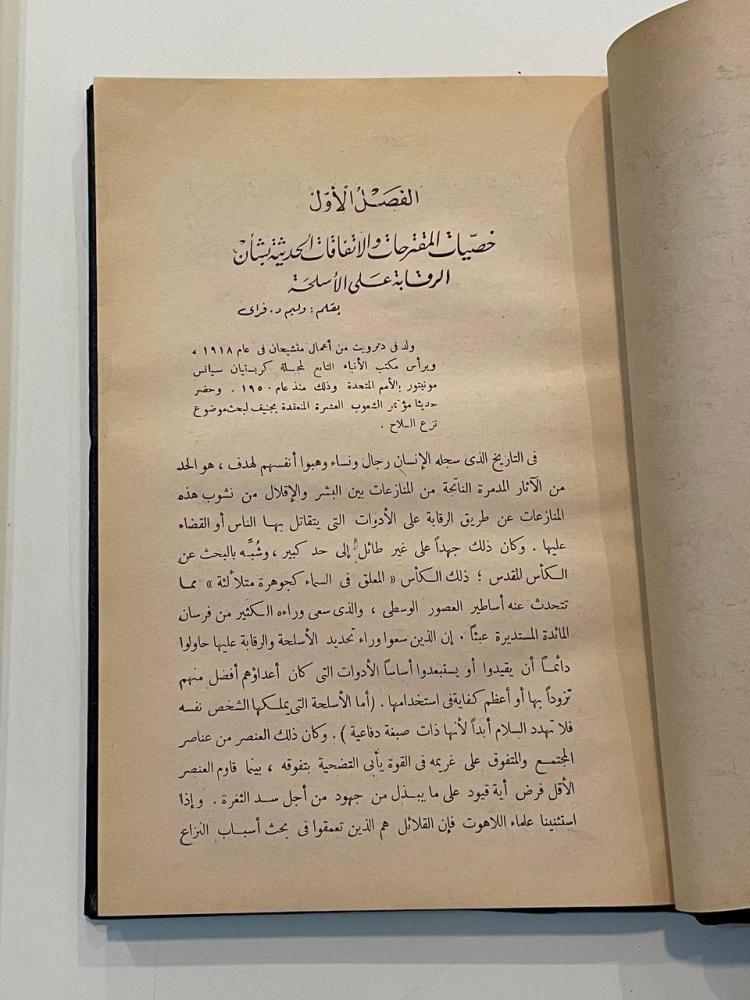 الفصل الأول
خصيات المقترحات والاتفاقات الحديثة بشأن
الرقابة على الأسلحة
بقلم : وليم د. فراى
ولد فى دترويت من أعمال متشيجان فى عام ١٩١٨ ،
ويرأس مكتب الأنباء التابع لمجلة كريستيان سيانس
مونيتور بالأمم المتحدة وذلك منذ عام ١٩٥٠ . وحضر
حديثا مؤتمر الشعوب العشرة المنعقدة بجنيف لبحث موضوع
نزع السلاح .
فى التاريخ الذى سجله الإنسان رجال ونساء وهبوا أنفسهم لهدف ، هو الحد
من الآثار المدمرة الناتجة من المنازعات بين البشر والإقلال من نشوب هذه
المنازعات عن طريق الرقابة على الأدوات التى يتقاتل بها الناس أو القضاء
عليها . وكان ذلك جهداً على غير طائل إلى حد كبير ، وشُبِّه بالبحث عن
الكأس المقدس ؛ ذلك الكأس « المعلق فى السماء كجوهرة متلألئة » مما
تتحدث عنه أساطير العصور الوسطى ، والذى سعى وراءه الكثير من فرسان
المائدة المستديرة عبثاً . إن الذين سعوا وراء تحديد الأسلحة والرقابة عليها حاولوا
دائماً أن يقيدوا أو يستبعدوا أساساً الأدوات التى كان أعداؤهم أفضل منهم
تزوداً بها أو أعظم كفاية فى استخدامها . (أما الأسلحة التى يملكها الشخص نفسه
فلا تهدد السلام أبداً لأنها ذات صبغة دفاعية ) . وكان ذلك العنصر من عناصر
المجتمع والمتفوق على غريمه فى القوة يأبى التضحية بتفوقه ، بينما قاوم العنصر
الأقل فرض أية قيود على ما يبذل من جهود من أجل سد الثغرة . وإذا
استثنينا علماء اللاهوت فإن القلائل هم الذين تعمقوا فى بحث أسباب النزاع